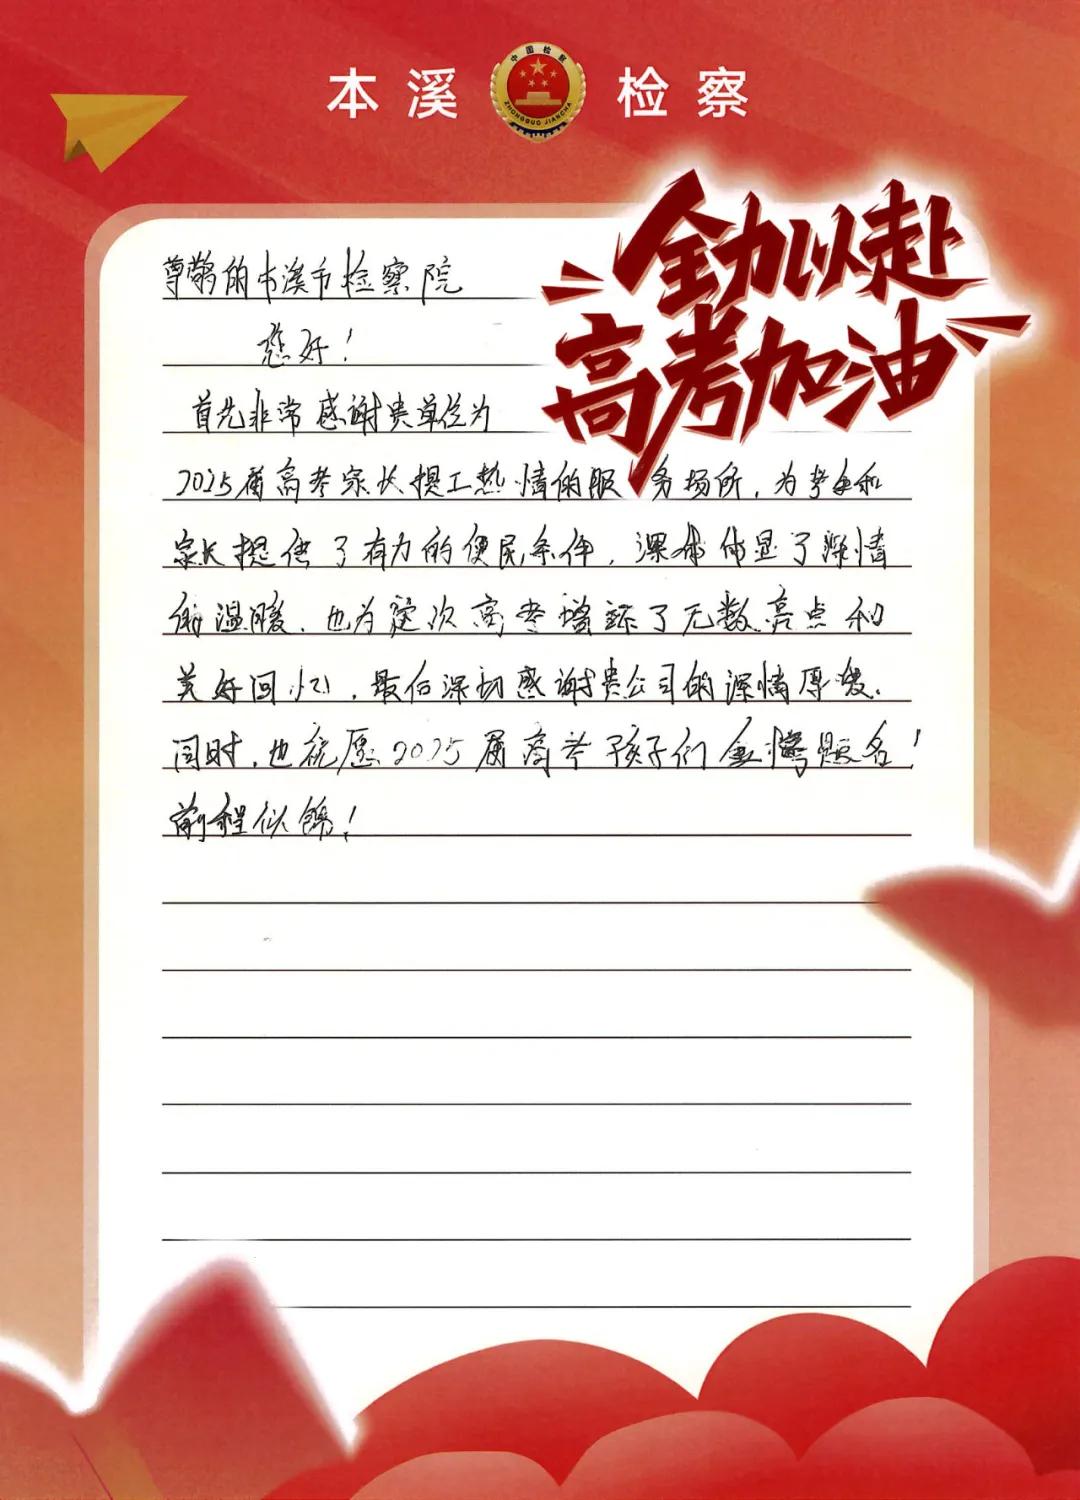 本溪 检察
中国检察
ZHONGGUO JIANCHA
全力以赴
高考加油
尊敬的本溪市检察院
您好！
首先非常感谢贵单位为
2025届高考家长提工热情的服务场所，为考生和
家长提供了有力的便民条件，深体彰显了浓情
的温暖，也为这次高考增添了无数亮点和
美好回忆，最后深切感谢贵公司的深情厚爱，
同时，也祝愿2025届高考孩子们金榜题名！
前程似锦！